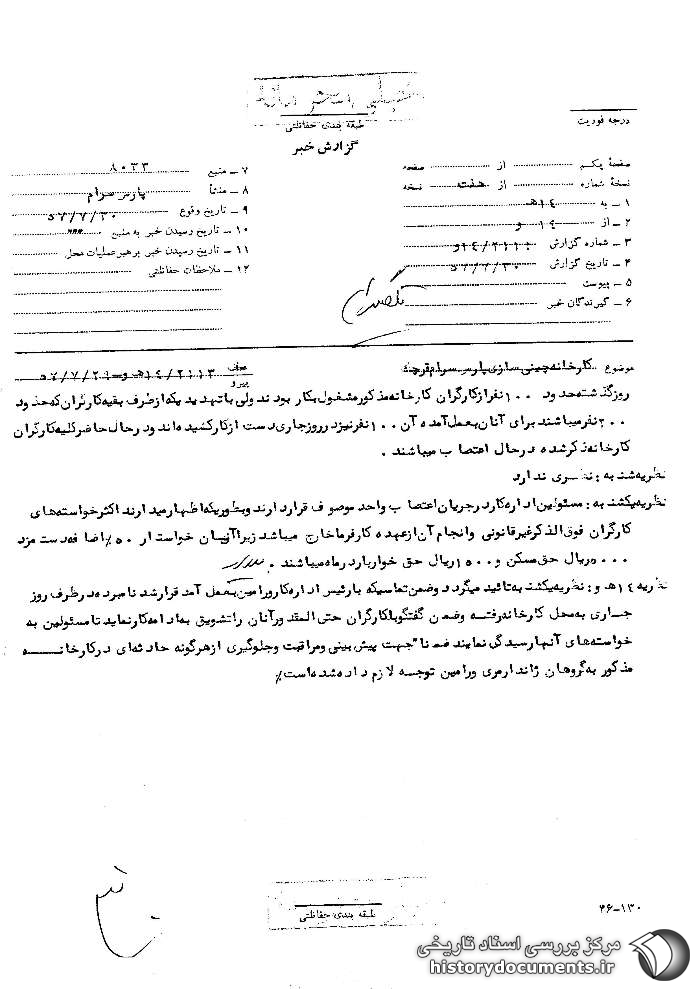 درجه فوریت
طبقه بندی حفاظتی
گزارش خبر
صفحهٔ یکم از صفحه
نسخهٔ شماره از هفت نسخه
۱ ـ به ۱۴هـ
۲ ـ از ۱۴ و
۳ ـ شماره گزارش
۴ ـ تاریخ گزارش ۵۷/۷/۳۰
۵ ـ پیوست
۶ ـ گیرندگان خبر
۷ ـ منبع ۸۰۳۳
۸ ـ منشأ پارس سرام
۹ ـ تاریخ وقوع ۵۷/۷/۳۰
۱۰ ـ تاریخ رسیدن خبر به منبع
۱۱ ـ تاریخ رسیدن خبر برهبر عملیات محل
۱۲ ـ ملاحظات حفاظتی
موضوع کارخانه چینی سازی پارس سرام قرچک
پیرو ۱۴/۲۱۱۳هـ و ـ
روزگذشته حدود ۱۰۰ نفر از کارگران کارخانه مذکور مشغول بکار بودند ولی با تهدیدیکه از طرف بقیه کارگران که حدود
۲۰۰ نفر میباشند برای آنان بعمل آمده آن ۱۰۰ نفر نیز در روز جاری دست از کار کشیده اند و در حال حاضر کلیه کارگران
کارخانه ذکر شده در حال اعتصاب میباشند .
نظریه شنبه : نظری ندارد
نظریه یکشنبه : مسئولین اداره کار در جریان اعتصاب واحد موصوف قرار دارند و بطوریکه اظهار میدارند اکثر خواسته های
کارگران فوق الذکر غیر قانونی و انجام آن از عهده کارفرما خارج میباشد زیرا آنها خواستار ۵۰٪ اضافه دست مزد
ریال حق مسکن و ۱۵۰۰ ریال حق خواربار در ماه میباشند .
نظریه ۱۴ هـ و : نظریه یکشنبه تائید میگردد و ضمن تماسیکه با رئیس اداره کار ورامین بعمل آمد قرار شد نامبرده در ظرف روز
جاری به محل کارخانه رفته و ضمن گفتگو با کارگران حتی المقدور آنان را تشویق به ادامه کار نماید تا مسئولین به
خواسته های آنها رسیدگی نمایند ضمنا" جهت پیش بینی و مراقبت و جلوگیری از هرگونه حادثه ای در کارخانه
مذکور به گروهان ژاندارمری ورامین توجیه لازم داده شده است٪
۳۶ـ۱۳۰
طبقه بندی حفاظتی
مرکز بررسی اسناد تاریخی
historydocuments.ir